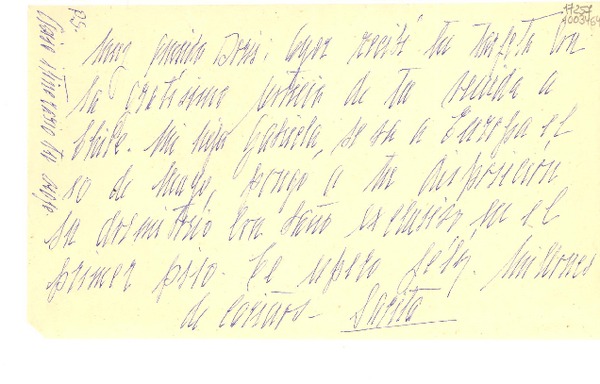 17257
1003464
Muy querida Doris: Ayer recibí tu tarjeta con
la gratísima noticia de tu venida a
Chile. Mi hija Gabriela, se va a Europa el
de Mayo, pongo a tu disposición
su dormitorio con baño exclusivo, en el
primer piso. Te espero feliz. Millones
de cariños - Sarita
P.S.
itinerario tu viaje